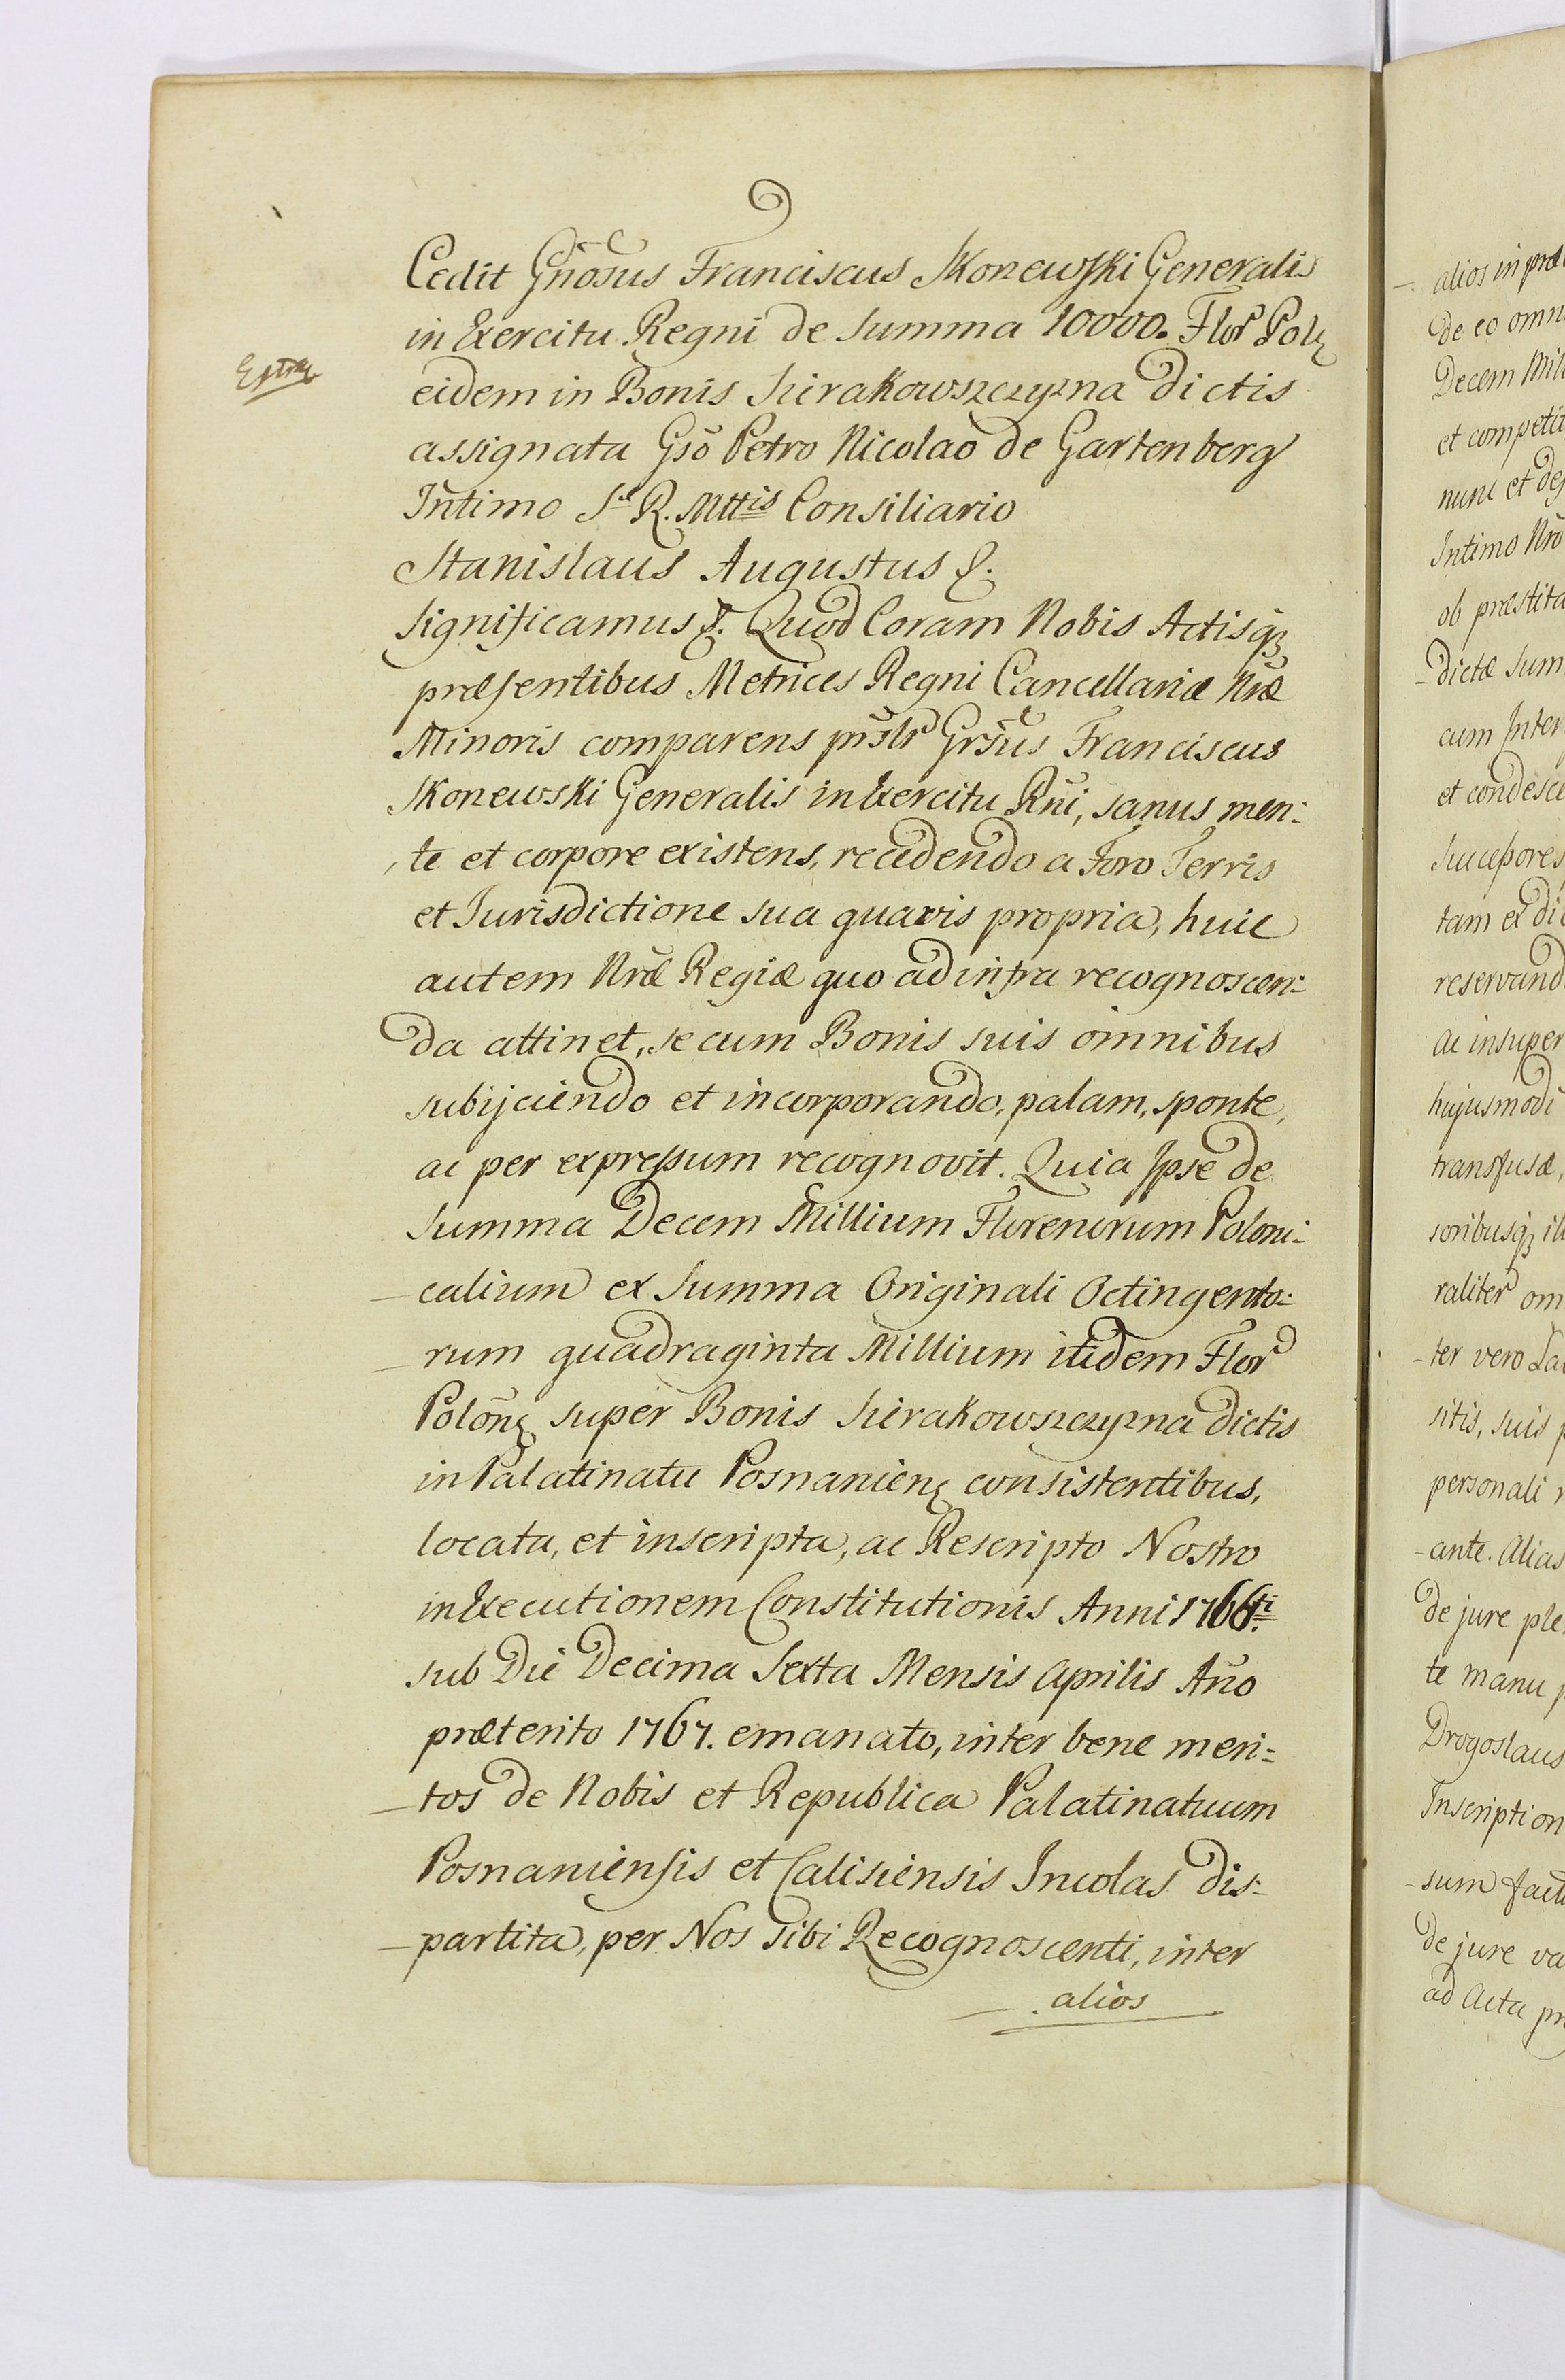 Cedit Gnõsus Franciscus Skonewski Generalis
in Exercitu Regni de Summa 10000. Flor Polꝫ
eidem in Bonis Sierakowszczyzna dictis
assignata Gsõ Petro Nicolao de Gartenberg
Intimo S. R. Mttis Consiliario
Stanislaus Augustus &.
Significamus &. Quod Coram Nobis Actisqꝫ
præsentibus Metrices Regni Cancellariæ Nræ
Minoris comparens prslr Grsus Franciscus
Skonewski Generalis in Exercitu Rñi, sanus men:
te et corpore existens, recedendo a Foro Terris
et Jurisdictione sua quavis propria, huic
autem Nræ Regiæ quo ad infra recognoscen:
da attinet, se cum Bonis suis omnibus
subijciendo et incorporando, palam, sponte,
ac per expressum recognovit. Quia Ipse de
Summa Decem Millium Florenorum Poloni:
-calium ex Summa Originali Octingento:
-rum quadraginta Millium itidem Flor
Polonꝫ super Bonis Sierakowszczyzna dictis
in Palatinatu Posnanienꝫ consistentibus,
locata, et inscripta, ac Rescripto Nostro
in Executionem Constitutionis Anni 1766ti
sub Die Decima Sexta Mensis Aprilis Año
præterito 1767. emanato, inter bene meri=
-tos de Nobis et Republica Palatinatuum
Posnaniensis et Calisiensis Incolas dis:
-partita, per Nos sibi Recognoscenti, inter
alios
alios in
de eo
Decem
et
nunc et
Intimo Nrõ
ob præstita
-dictæ
cum
et
Successores
tam ex
ac insuper
hujusmodi
transfusæ,
soribusqꝫ
raliter
-ter vero
sitis, suis
personali
-ante. Alias
de jure
te manu
Drogoslaus
-sum
de jure
ad Acta